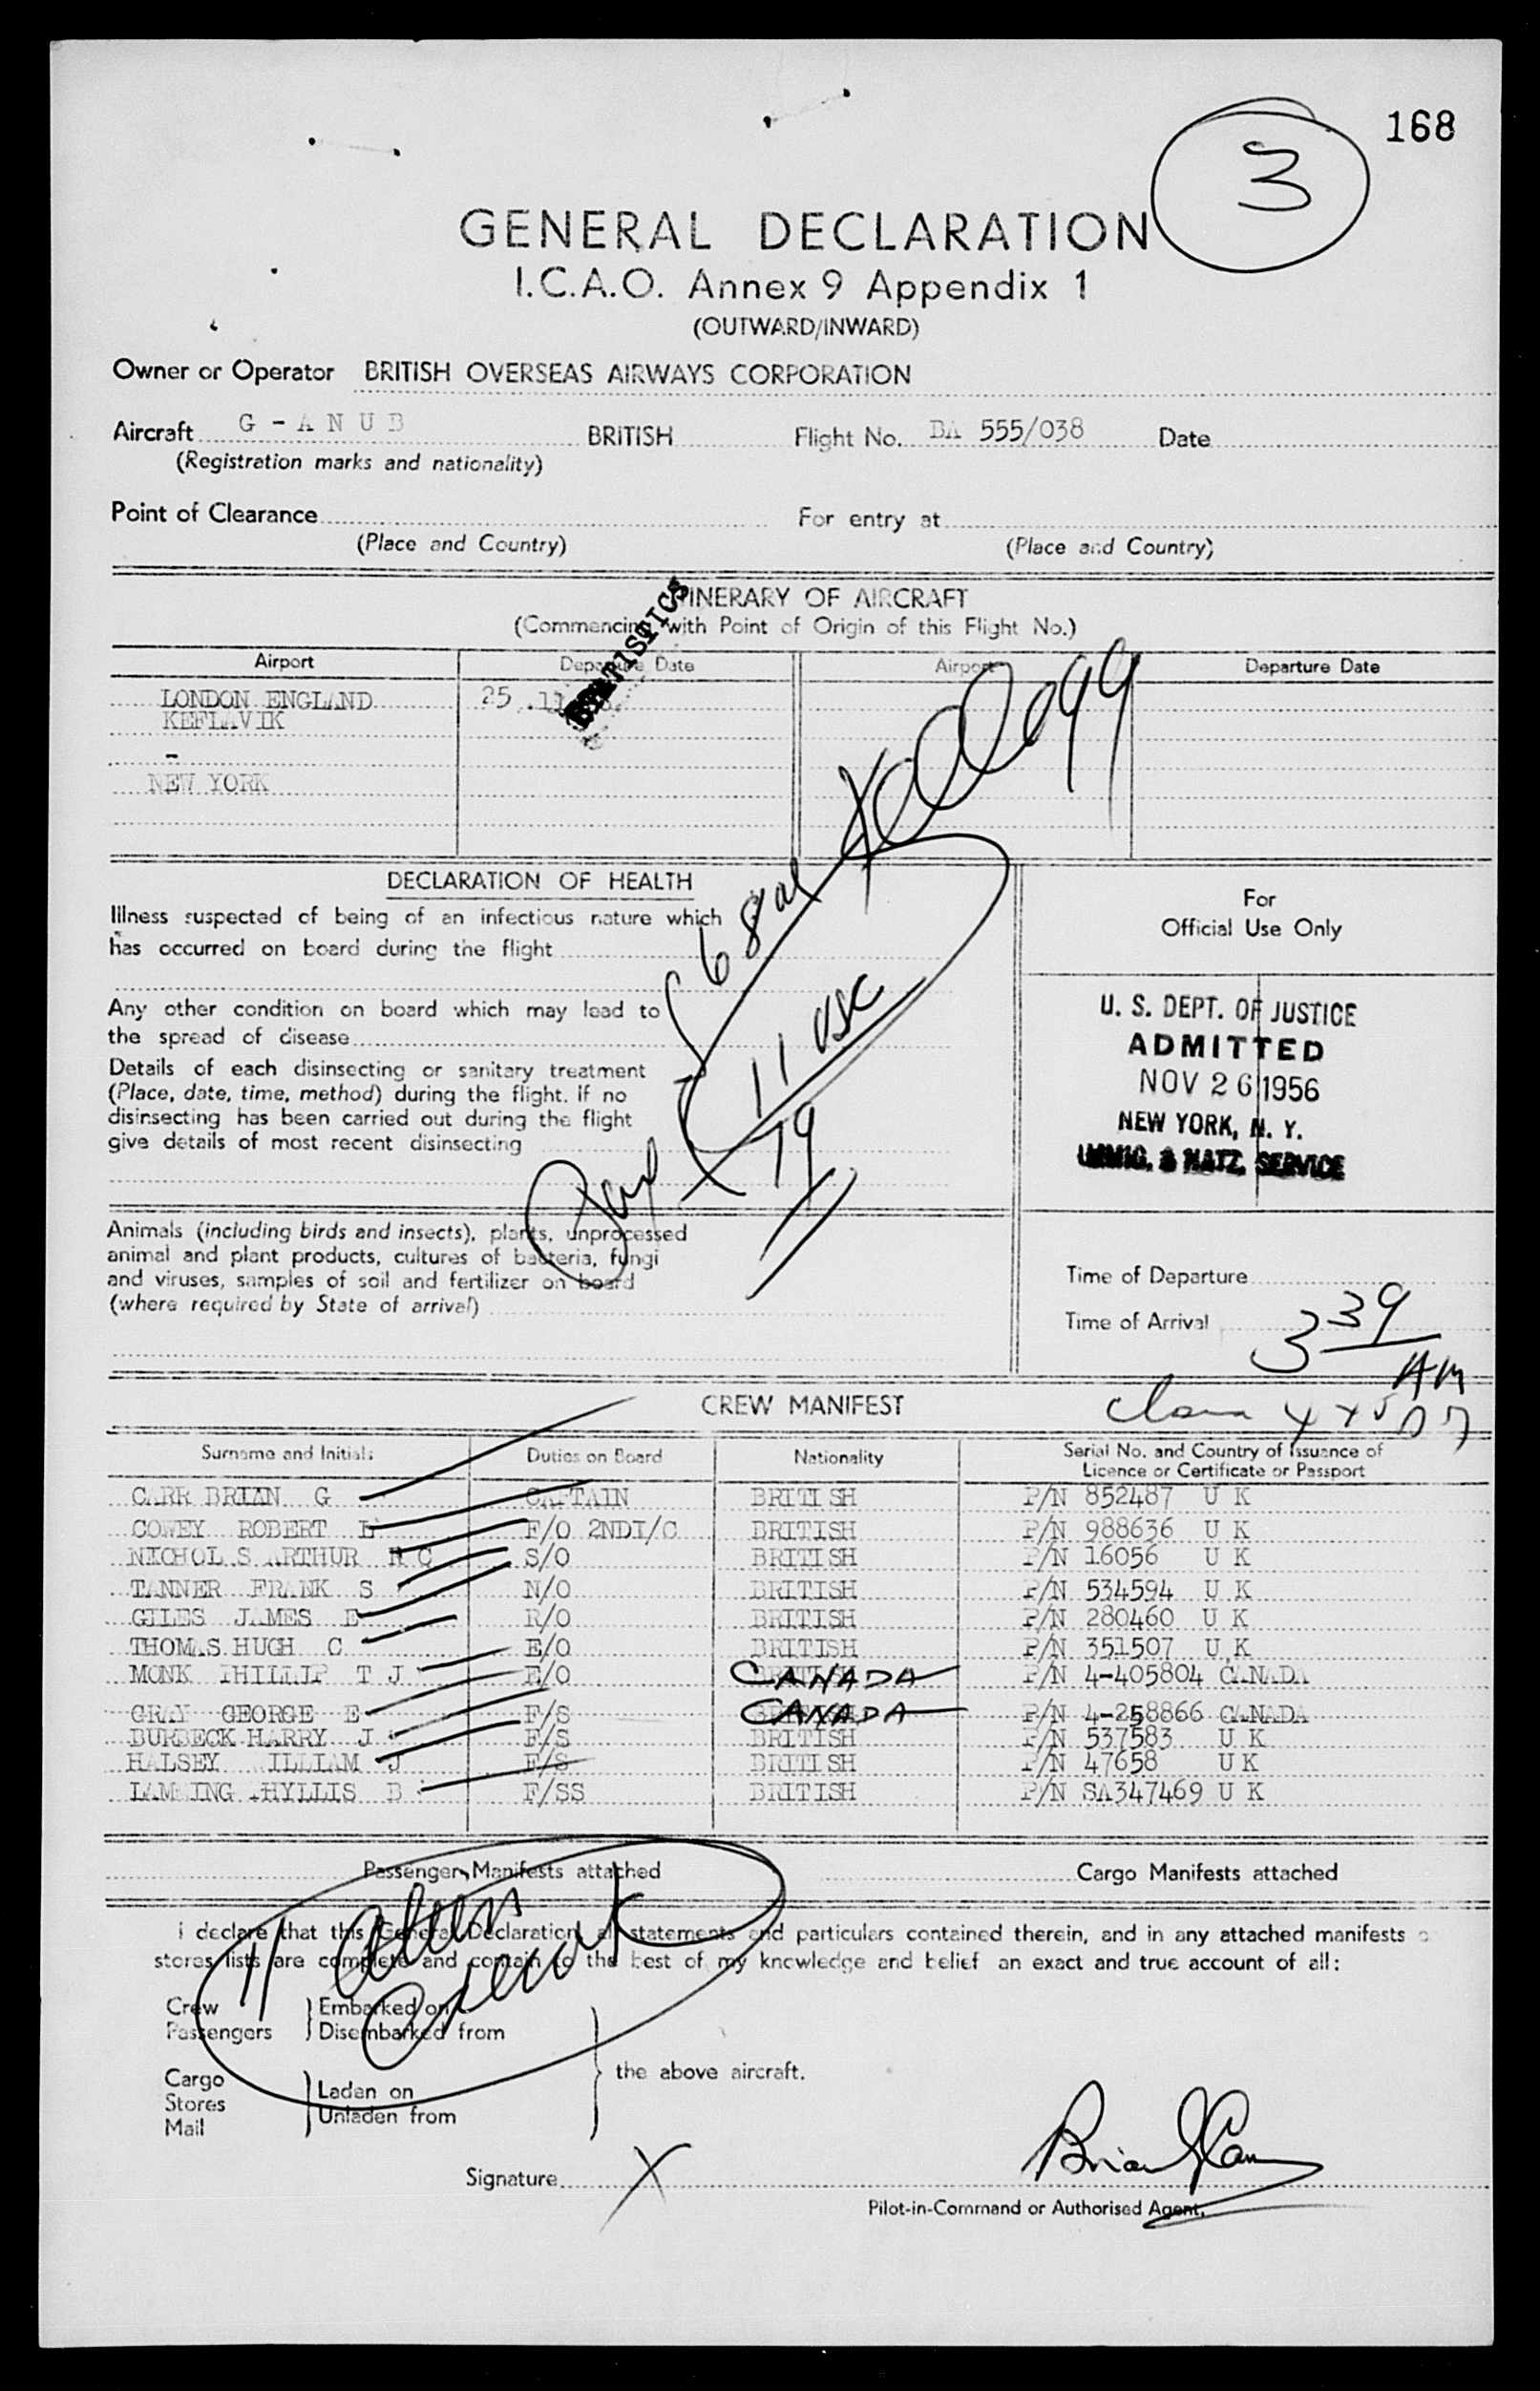 168
3
GENERAL DECLARATION
I.C.A.O. Annex 9 Appendix 1
(OUTWARD/INWARD)
Owner or Operator BRITISH OVERSEAS AIRWAYS CORPORATION
Aircraft G - A N U B BRITISH Flight No. BA 555/038 Date
(Registration marks and nationality)
Point of Clearance For entry at
(Place and Country) (Place and Country)
ITINERARY OF AIRCRAFT
(Commencing with Point of Origin of this Flight No.)
STATISTICS
Airport Departure Date Airport Departure Date
LONDON ENGLAND 25.11
KEFLAVIK
-
NEW YORK
Kellogg
DECLARATION OF HEALTH
Illness suspected of being of an infectious nature which
has occurred on board during the flight
Any other condition on board which may lead to
the spread of disease
Details of each disinsecting or sanitary treatment
(Place, date, time, method) during the flight. If no
disinsecting has been carried out during the flight
give details of most recent disinsecting
68 al
11 USC
79
For
Official Use Only
U. S. DEPT. OF JUSTICE
ADMITTED
NOV 26 1956
NEW YORK, N. Y.
IMMIG. & NATZ. SERVICE
Animals (including birds and insects), plants, unprocessed
animal and plant products, cultures of bacteria, fungi
and viruses, samples of soil and fertilizer on board
(where required by State of arrival)
Time of Departure
Time of Arrival 3 39 AM
CREW MANIFEST
Surname and Initials Duties on Board Nationality Serial No. and Country of Issuance of
Licence or Certificate or Passport
CARR BRIAN G CAPTAIN BRITISH P/N 852487 U K
COWEY ROBERT F/O 2NDI/C BRITISH P/N 988636 U K
NICHOLS ARTHUR H C S/O BRITISH P/N 16056 U K
TANNER FRANK S N/O BRITISH P/N 534594 U K
GILES JAMES E R/O BRITISH P/N 280460 U K
THOMAS HUGH C E/O BRITISH P/N 351507 U K
MONK PHILLIP T J E/O CANADA P/N 4-405804 CANADA
GRAY GEORGE E F/S CANADA P/N 4-258866 CANADA
BURBECK HARRY J F/S BRITISH P/N 537583 U K
HALSEY WILLIAM J F/S BRITISH P/N 47658 U K
LAMMING PHYLLIS B F/SS BRITISH P/N SA347469 U K
Passenger Manifests attached Cargo Manifests attached
I declare that this General Declaration all statements and particulars contained therein, and in any attached manifests
stores lists are complete and contain to the best of my knowledge and belief an exact and true account of all:
11 alien crew
Crew Embarked on
Passengers Disembarked from
the above aircraft.
Cargo Laden on
Stores
Unladen from
Mail
Signature X Brian G Carr
Pilot-in-Command or Authorised Agent.